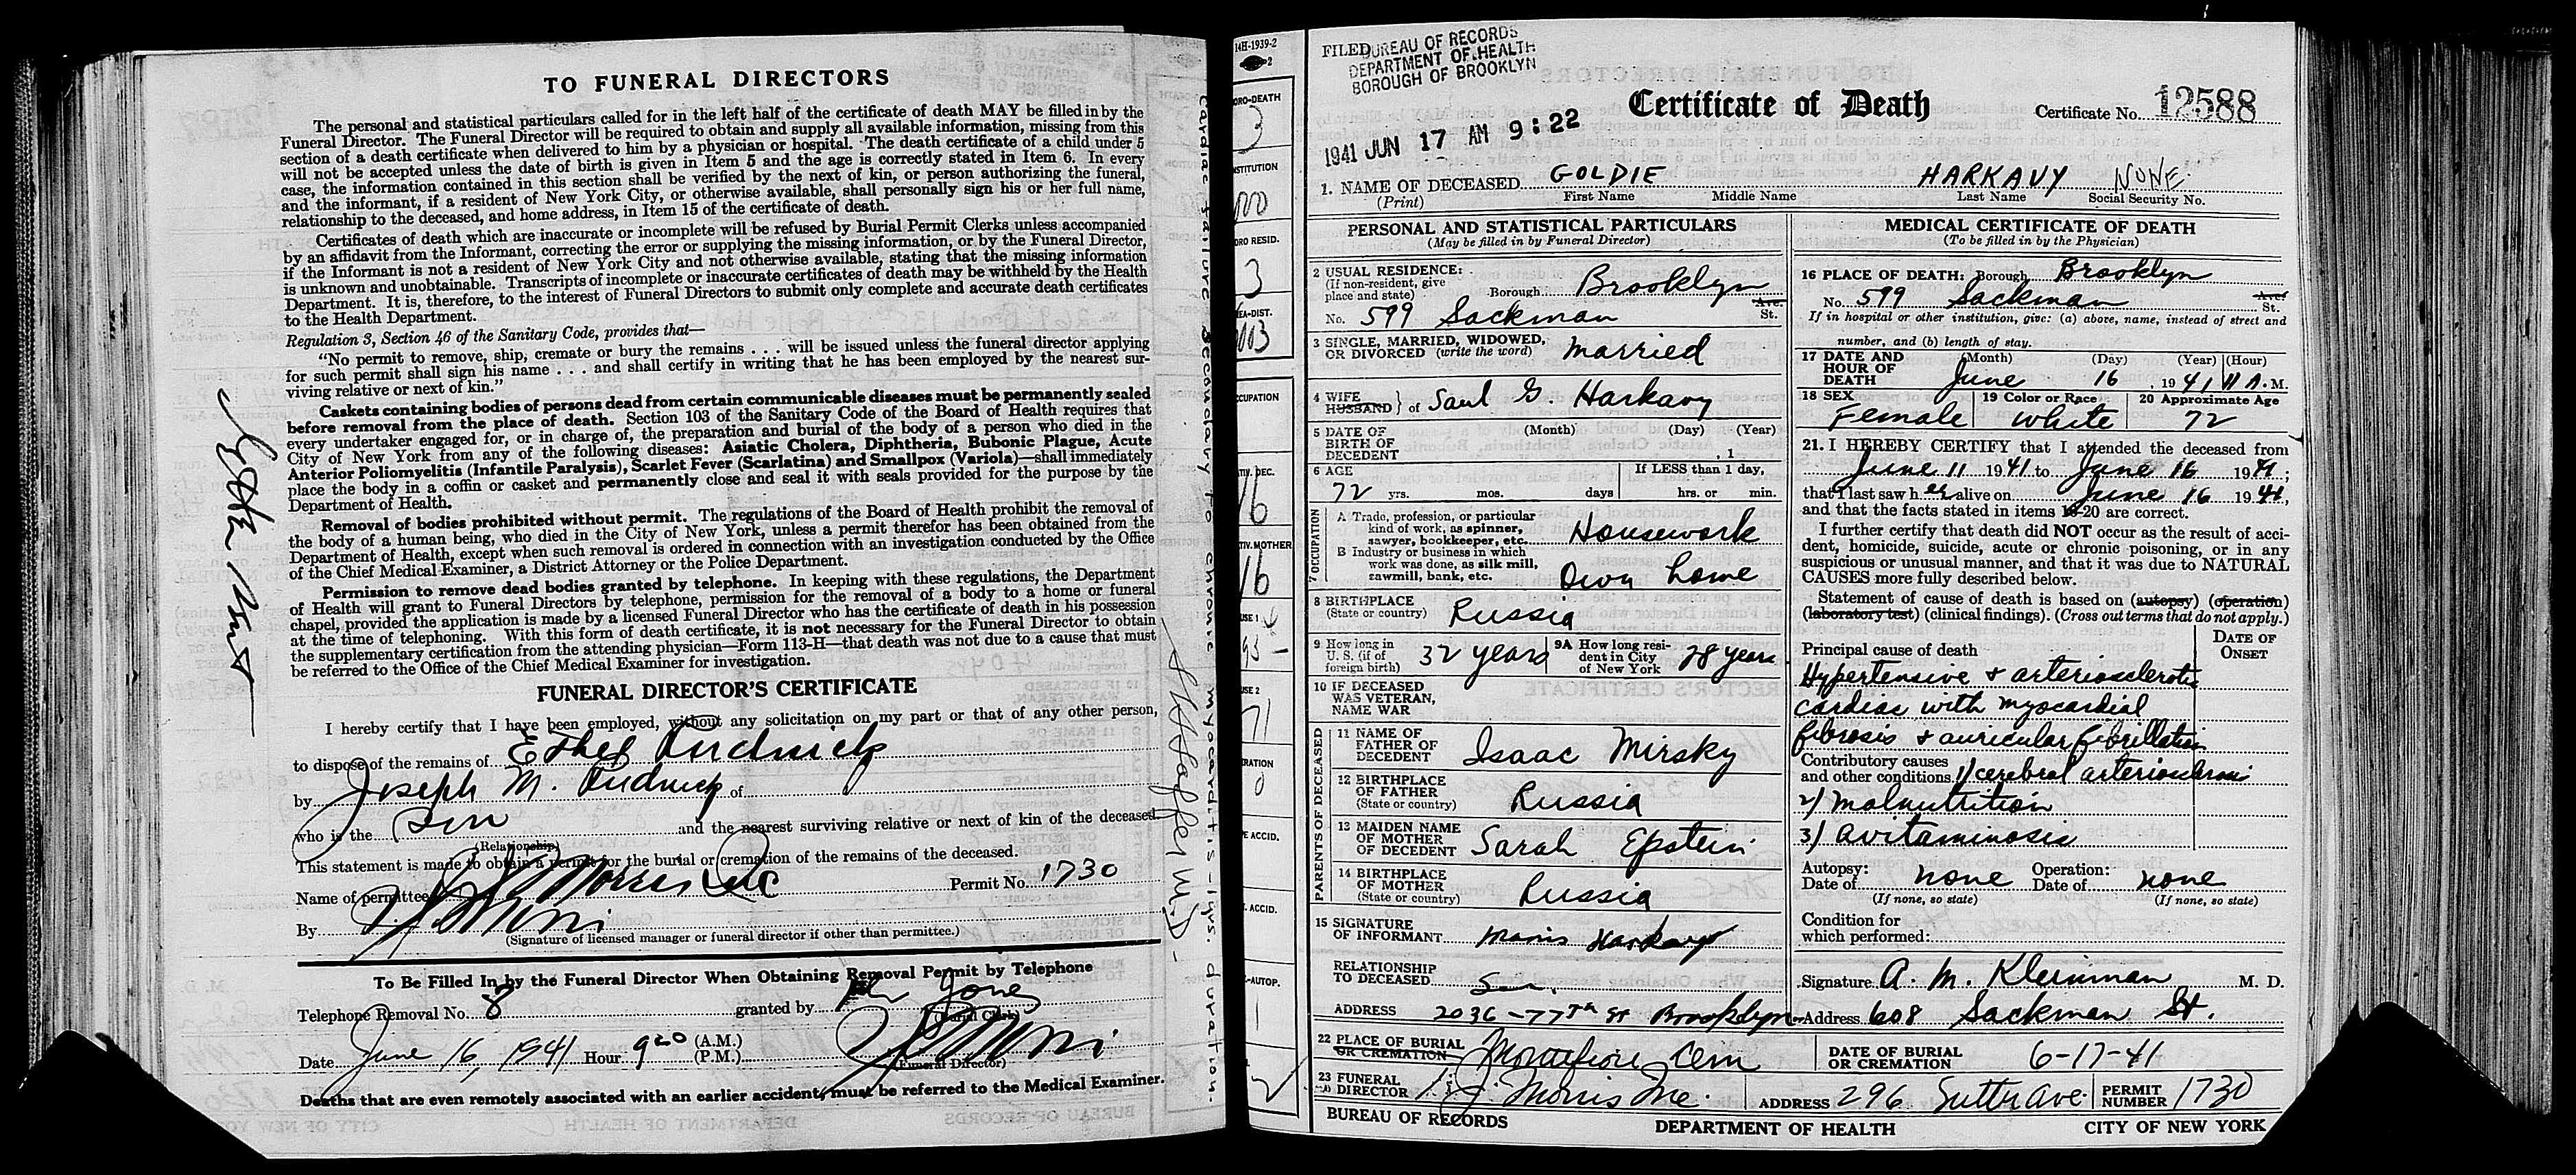 TO FUNERAL DIRECTORS
The personal and statistical particulars called for in the left half of the certificate of death MAY be filled in by the
Funeral Director. The Funeral Director will be required to obtain and supply all available information, missing from this
section of a death certificate when delivered to him by a physician or hospital. The death certificate of a child under 5
will not be accepted unless the date of birth is given in Item 5 and the age is correctly stated in Item 6. In every
case, the information contained in this section shall be verified by the next of kin, or person authorizing the funeral,
and the informant, if a resident of New York City, or otherwise available, shall personally sign his or her full name,
relationship to the deceased, and home address, in Item 15 of the certificate of death.
Certificates of death which are inaccurate or incomplete will be refused by Burial Permit Clerks unless accompanied
by an affidavit from the Informant, correcting the error or supplying the missing information, or by the Funeral Director,
if the Informant is not a resident of New York City and not otherwise available, stating that the missing information
is unknown and unobtainable. Transcripts of incomplete or inaccurate certificates of death may be withheld by the Health
Department. It is, therefore, to the interest of Funeral Directors to submit only complete and accurate death certificates
to the Health Department.
Regulation 3, Section 46 of the Sanitary Code, provides that—
"No permit to remove, ship, cremate or bury the remains . . . will be issued unless the funeral director applying
for such permit shall sign his name . . . and shall certify in writing that he has been employed by the nearest sur-
viving relative or next of kin."
Caskets containing bodies of persons dead from certain communicable diseases must be permanently sealed
before removal from the place of death. Section 103 of the Sanitary Code of the Board of Health requires that
every undertaker engaged for, or in charge of, the preparation and burial of the body of a person who died in the
City of New York from any of the following diseases: Asiatic Cholera, Diphtheria, Bubonic Plague, Acute
Anterior Poliomyelitis (Infantile Paralysis), Scarlet Fever (Scarlatina) and Smallpox (Variola)—shall immediately
place the body in a coffin or casket and permanently close and seal it with seals provided for the purpose by the
Department of Health.
Removal of bodies prohibited without permit. The regulations of the Board of Health prohibit the removal of
the body of a human being, who died in the City of New York, unless a permit therefor has been obtained from the
Department of Health, except when such removal is ordered in connection with an investigation conducted by the Office
of the Chief Medical Examiner, a District Attorney or the Police Department.
Permission to remove dead bodies granted by telephone. In keeping with these regulations, the Department
of Health will grant to Funeral Directors by telephone, permission for the removal of a body to a home or funeral
chapel, provided the application is made by a licensed Funeral Director who has the certificate of death in his possession
at the time of telephoning. With this form of death certificate, it is not necessary for the Funeral Director to obtain
the supplementary certification from the attending physician—Form 113-H—that death was not due to a cause that must
be referred to the Office of the Chief Medical Examiner for investigation.
FUNERAL DIRECTOR'S CERTIFICATE
I hereby certify that I have been employed, without any solicitation on my part or that of any other person,
to dispose of the remains of Ethel Rudnick
by Joseph M. Rudnick of
who is the Son and the nearest surviving relative or next of kin of the deceased.
(Relationship)
This statement is made to obtain a permit for the burial or cremation of the remains of the deceased.
Name of permittee Morris Inc Permit No. 1730
By
(Signature of licensed manager or funeral director if other than permittee.)
To Be Filled In by the Funeral Director When Obtaining Removal Permit by Telephone
Telephone Removal No. 8 granted by Jones
(Burial Clerk)
Date June 16, 1941 Hour 9 20 (A.M.)
(P.M.)
(Funeral Director)
Deaths that are even remotely associated with an earlier accident, must be referred to the Medical Examiner.
cardiac failure secondary to chronic myocarditis - 1 yrs. duration.
14H-1939-2
FILED BUREAU OF RECORDS
DEPARTMENT OF HEALTH
BOROUGH OF BROOKLYN
1941 JUN 17 AM 9:22
Certificate of Death
Certificate No. 12588
1. NAME OF DECEASED GOLDIE HARKAVY NONE
(Print) First Name Middle Name Last Name Social Security No.
PERSONAL AND STATISTICAL PARTICULARS
(May be filled in by Funeral Director)
2 USUAL RESIDENCE:
(If non-resident, give
place and state) Borough Brooklyn
No. 599 Sackman Ave. St.
3 SINGLE, MARRIED, WIDOWED,
OR DIVORCED (write the word) married
4 WIFE
HUSBAND } of Saul G. Harkavy
5 DATE OF
BIRTH OF
DECEDENT (Month) (Day) (Year)
, 1
6 AGE If LESS than 1 day,
72 yrs. mos. days hrs. or min.
7 OCCUPATION
A Trade, profession, or particular
kind of work, as spinner,
sawyer, bookkeeper, etc. Housework
B Industry or business in which
work was done, as silk mill,
sawmill, bank, etc. Own home
8 BIRTHPLACE
(State or country) Russia
9 How long in
U. S. (if of
foreign birth) 32 years
9A How long resi-
dent in City
of New York 28 years
10 IF DECEASED
WAS VETERAN,
NAME WAR
PARENTS OF DECEASED
11 NAME OF
FATHER OF
DECEDENT Isaac Mirsky
12 BIRTHPLACE
OF FATHER
(State or country) Russia
13 MAIDEN NAME
OF MOTHER
OF DECEDENT Sarah Epstein
14 BIRTHPLACE
OF MOTHER
(State or country) Russia
15 SIGNATURE
OF INFORMANT Morris Harkavy
RELATIONSHIP
TO DECEASED Son.
ADDRESS 2036 - 77th St Brooklyn
MEDICAL CERTIFICATE OF DEATH
(To be filled in by the Physician)
16 PLACE OF DEATH: Borough Brooklyn
No. 599 Sackman Ave. St.
If in hospital or other institution, give: (a) above, name, instead of street and
number, and (b) length of stay.
17 DATE AND
HOUR OF
DEATH (Month) (Day) (Year) (Hour)
June 16, 1941 11 A. M.
18 SEX 19 Color or Race 20 Approximate Age
Female White 72
21. I HEREBY CERTIFY that I attended the deceased from
June 11 1941 to June 16 1941;
that I last saw her alive on June 16 1941,
and that the facts stated in items 16-20 are correct.
I further certify that death did NOT occur as the result of acci-
dent, homicide, suicide, acute or chronic poisoning, or in any
suspicious or unusual manner, and that it was due to NATURAL
CAUSES more fully described below.
Statement of cause of death is based on (autopsy) (operation)
(laboratory test) (clinical findings). (Cross out terms that do not apply.)
DATE OF
ONSET
Principal cause of death
Hypertensive & arteriosclerotic
cardiac with myocardial
fibrosis & auricular fibrillation
Contributory causes
and other conditions 1) cerebral arteriosclerosis
2) Malnutrition
3) avitaminosis
Autopsy:
Date of none Operation:
Date of none
(If none, so state) (If none, so state)
Condition for
which performed:
Signature A. M. Kleinman M. D.
Address 608 Sackman St.
22 PLACE OF BURIAL
OR CREMATION Montefiore Cem
DATE OF BURIAL
OR CREMATION 6-17-41
23 FUNERAL
DIRECTOR J. Morris Inc. ADDRESS 296 Sutter Ave. PERMIT
NUMBER 1730
BUREAU OF RECORDS DEPARTMENT OF HEALTH CITY OF NEW YORK